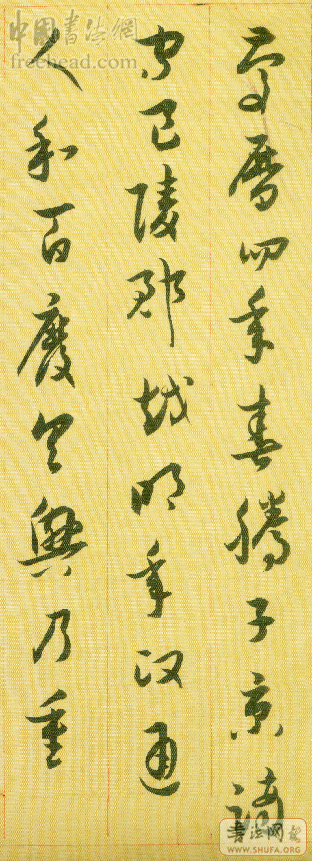 慶曆四年春滕子京謫
守巴陵郡越明年政通
人和百廢具興乃重
中國書法網
freehead.com
書法网
WWW.SHUFA.ORG